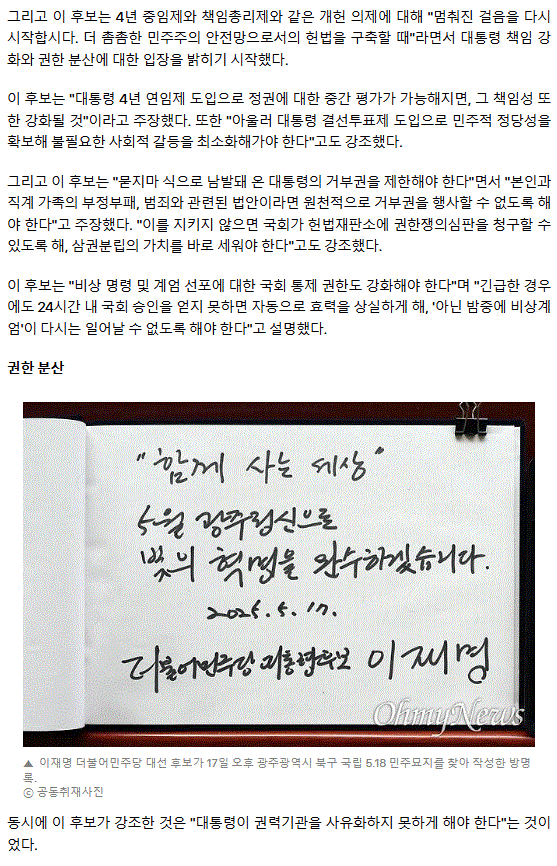 그리고 이 후보는 4년 중임제와 책임총리제와 같은 개헌 의제에 대해 "멈춰진 걸음을 다시
시작합시다. 더 촘촘한 민주주의 안전망으로서의 헌법을 구축할 때"라면서 대통령 책임 강
화와 권한 분산에 대한 입장을 밝히기 시작했다.
이 후보는 "대통령 4년 연임제 도입으로 정권에 대한 중간 평가가 가능해지면, 그 책임성 또
한 강화될 것"이라고 주장했다. 또한 "아울러 대통령 결선투표제 도입으로 민주적 정당성을
확보해 불필요한 사회적 갈등을 최소화해가야 한다"고도 강조했다.
그리고 이 후보는 "묻지마 식으로 남발돼 온 대통령의 거부권을 제한해야 한다"면서 "본인과
직계 가족의 부정부패, 범죄와 관련된 법안이라면 원천적으로 거부권을 행사할 수 없도록 해
야 한다"고 주장했다. "이를 지키지 않으면 국회가 헌법재판소에 권한쟁의심판을 청구할 수
있도록 해, 삼권분립의 가치를 바로 세워야 한다"고도 강조했다.
이 후보는 "비상 명령 및 계엄 선포에 대한 국회 통제 권한도 강화해야 한다"며 "긴급한 경우
에도 24시간 내 국회 승인을 얻지 못하면 자동으로 효력을 상실하게 해, '아닌 밤중에 비상계
엄'이 다시는 일어날 수 없도록 해야 한다"고 설명했다.
권한 분산
"함께 사는 세상"
5월 광주정신으로
빛의 혁명을 완수하겠습니다.
2025. 5. 17.
더불어민주당 대통령후보 이재명
OhmyNews
▲ 이재명 더불어민주당 대선 후보가 17일 오후 광주광역시 북구 국립 5.18 민주묘지를 찾아 작성한 방명
록.
ⓒ 공동취재사진
동시에 이 후보가 강조한 것은 "대통령이 권력기관을 사유화하지 못하게 해야 한다"는 것이
었다.